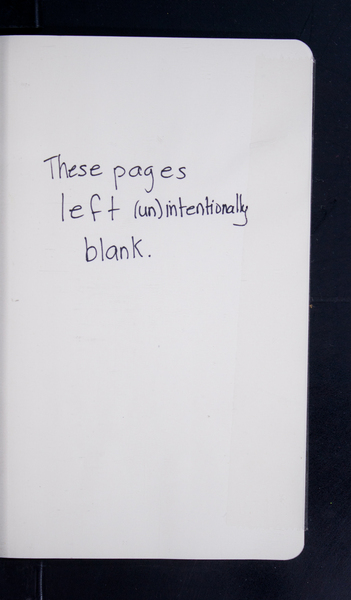 These pages
left (un)intentionally
blank.